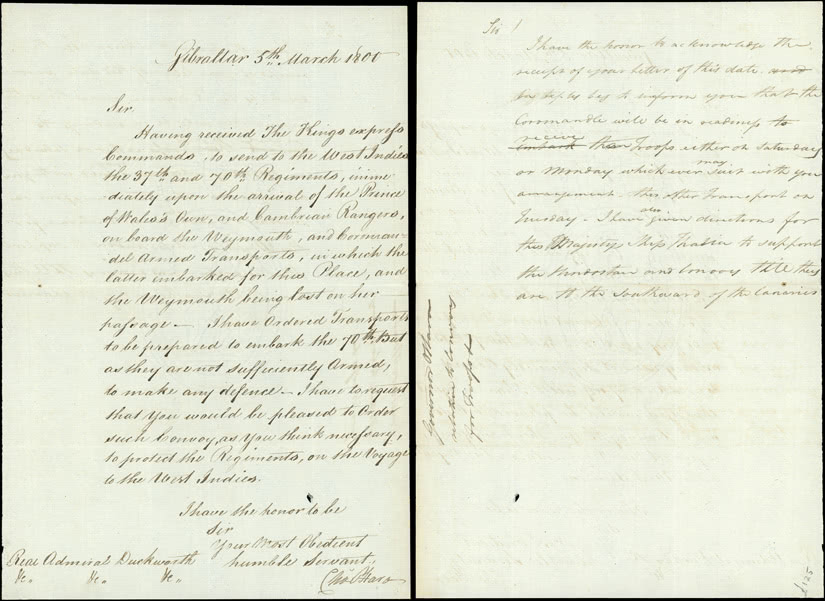 Gibraltar 5th March 1800
Sir
Having received The Kings express
Commands, to send to the West Indies
the 37th and 70th Regiments, imme
diately upon the arrival of the Prince
of Wales's Own, and Cambrian Rangers,
on board the Weymouth, and Corman-
del Armed Transports, in which the
latter embarked for this Place, and
the Weymouth being lost on her
passage — I have Ordered Transports
to be prepared to embark the 70th But
as they are not sufficiently Armed,
to make any defence — I have to request
that You would be pleased to Order
such Convoy, as You think necessary,
to protect the Regiments, on the Voyage
to the West Indies.
I have the honor to be
Sir
Your Most Obedient
humble Servant
Chas O'Hara
Rear Admiral Duckworth
&c. &c. &c.
Sir!
I have the honor to acknowledge the
receipt of your letter of this date and
beg to inform you that the
Cormandle will be in readiness to
receive
embark the Troops either on Saturday
or Monday which ever may suit with you
arrangement the other Transport on
Tuesday - I have also given directions for
His Majesty Ship to support
the Hindostan and Convoy till they
are to the Southward of the Canaries
Governor O'Hara
relative to Convoy
for Troops
£125